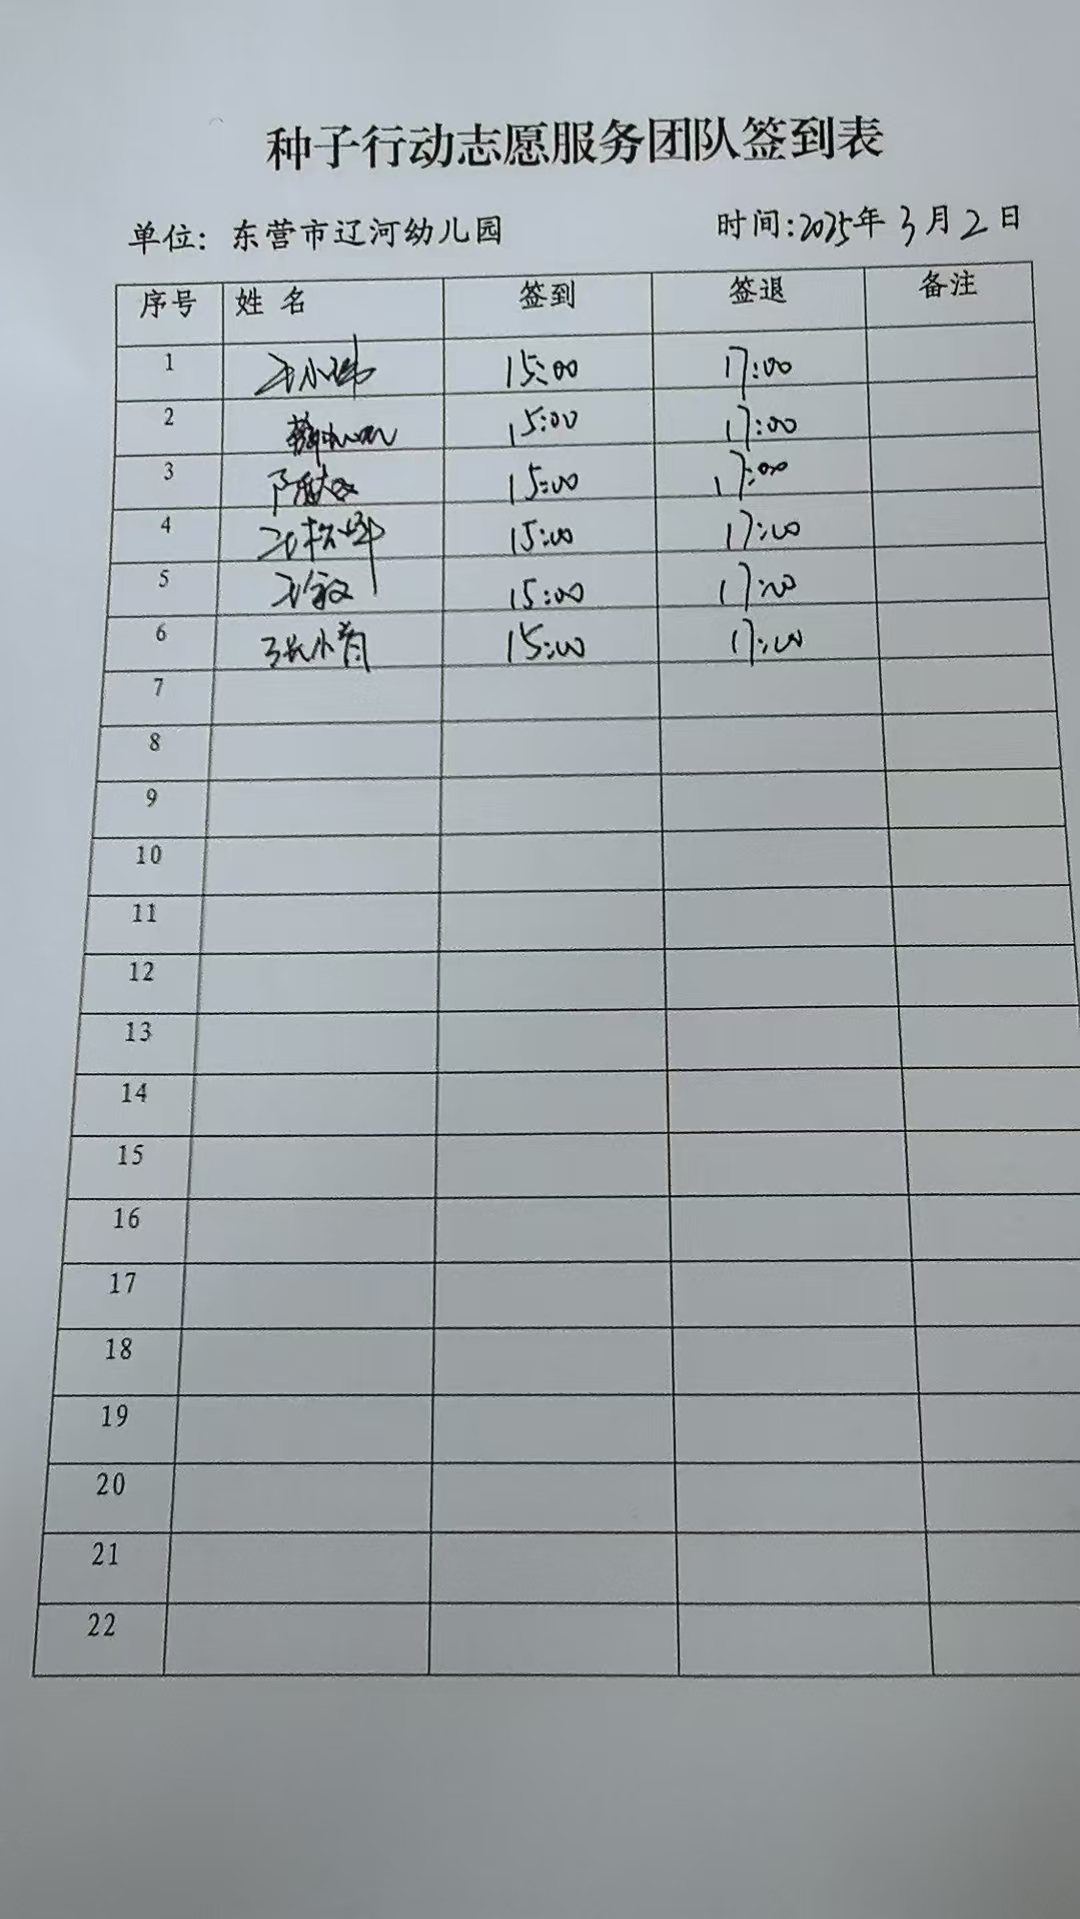 种子行动志愿服务团队签到表
单位：东营市辽河幼儿园 时间:2025年3月2日
序号 姓名 签到 签退 备注
1 王小 15:00 17:00
2 15:00 17:00
3 陈 15:00 17:00
4 王 15:00 17:00
5 王 15:00 17:00
6 张小青 15:00 17:00
7
8
9
10
11
12
13
14
15
16
17
18
19
20
21
22